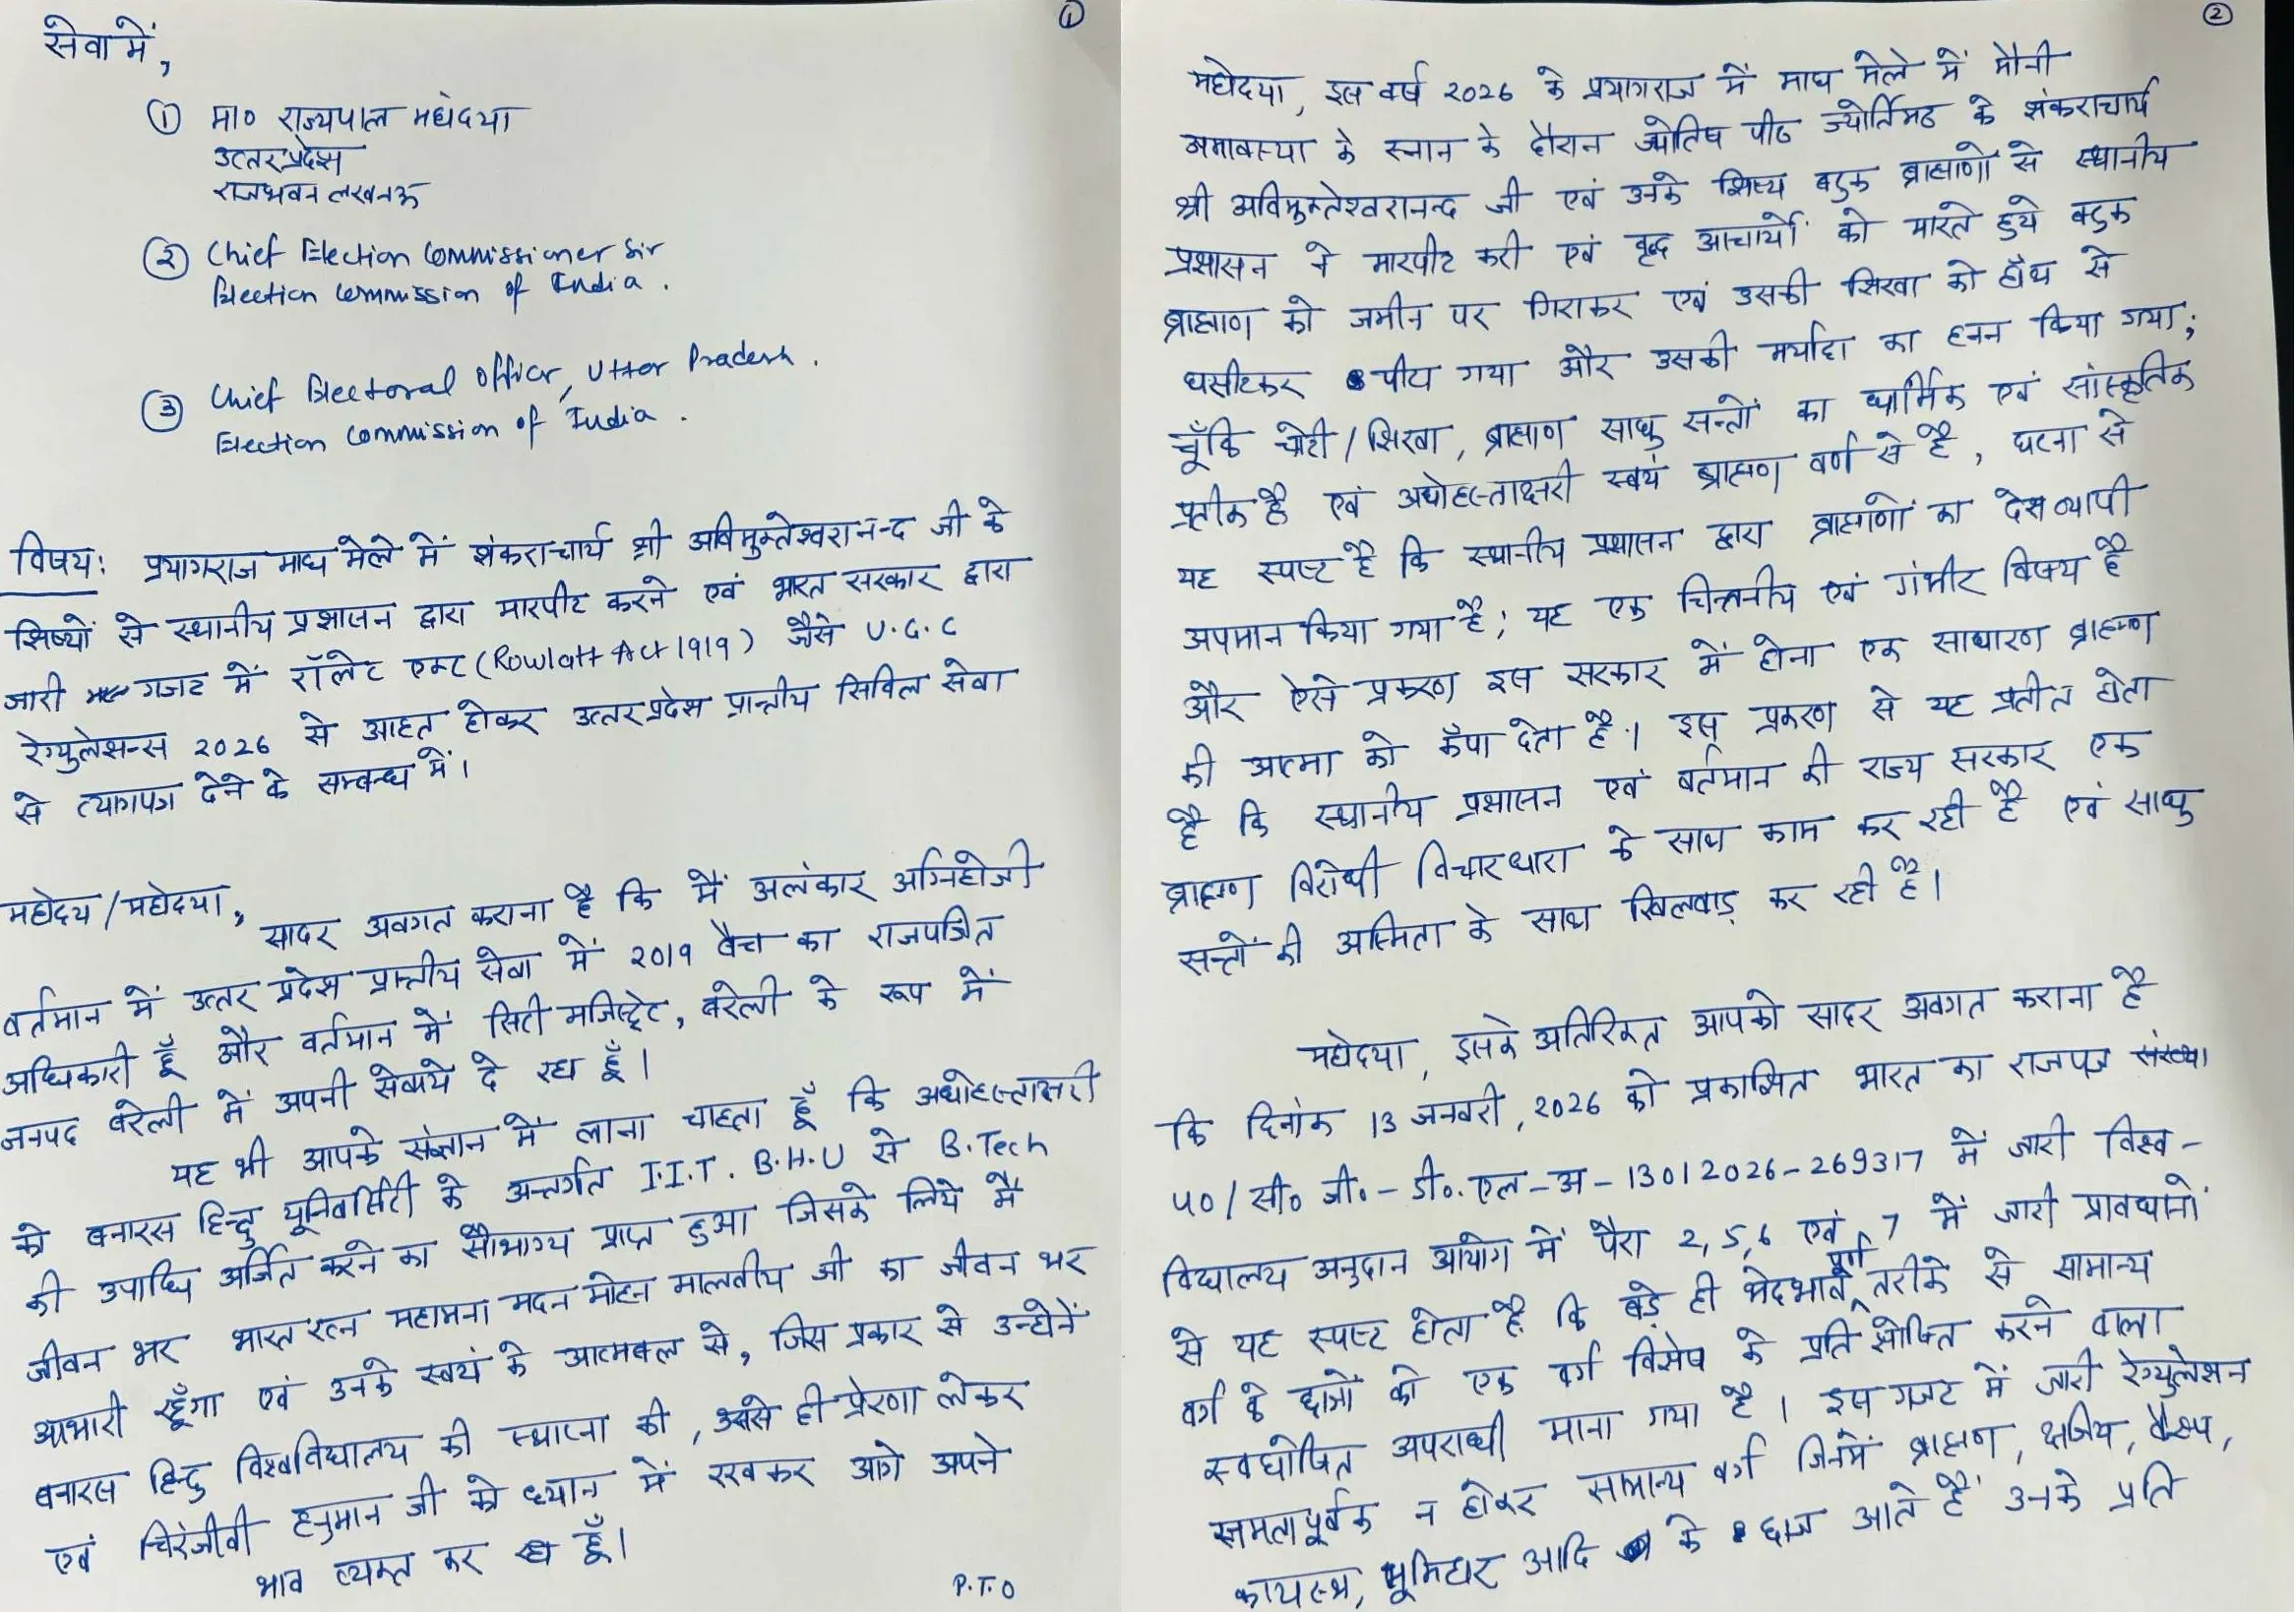 ①
सेवा में,
① मा० राज्यपाल महोदया
उत्तर प्रदेश
राजभवन लखनऊ
② Chief Election Commissioner Sir
Election Commission of India.
③ Chief Electoral Officer, Uttar Pradesh.
Election Commission of India.
विषय: प्रयागराज माघ मेले में शंकराचार्य श्री अविमुक्तेश्वरानन्द जी के
शिष्यों से स्थानीय प्रशासन द्वारा मारपीट करने एवं भारत सरकार द्वारा
जारी गजट में रॉलेट एक्ट (Rowlatt Act 1919) जैसे U.G.C
रेग्युलेशन्स 2026 से आहत होकर उत्तर प्रदेश प्रान्तीय सिविल सेवा
से त्यागपत्र देने के सम्बन्ध में।
महोदय/महोदया,
सादर अवगत कराना है कि मैं अलंकार अग्निहोत्री
वर्तमान में उत्तर प्रदेश प्रान्तीय सेवा में 2019 बैच का राजपत्रित
अधिकारी हूँ और वर्तमान में सिटी मजिस्ट्रेट, बरेली के रूप में
जनपद बरेली में अपनी सेवाये दे रहा हूँ।
यह भी आपके संज्ञान में लाना चाहता हूँ कि अधोहस्ताक्षरी
को बनारस हिन्दु यूनिवर्सिटी के अन्तर्गत I.I.T. B.H.U से B.Tech
की उपाधि अर्जित करने का सौभाग्य प्राप्त हुआ जिसके लिये मैं
जीवन भर भारत रत्न महामना मदन मोहन मालवीय जी का जीवन भर
आभारी रहूँगा एवं उनके स्वयं के आत्मबल से, जिस प्रकार से उन्होनें
बनारस हिन्दु विश्वविद्यालय की स्थापना की, उससे ही प्रेरणा लेकर
एवं चिरंजीवी हनुमान जी को ध्यान में रखकर आगे अपने
भाव व्यक्त कर रहा हूँ।
P.T.O
②
महोदया, इस वर्ष 2026 के प्रयागराज में माघ मेले में मौनी
अमावस्या के स्नान के दौरान ज्योतिष पीठ ज्योर्तिमठ के शंकराचार्य
श्री अविमुक्तेश्वरानन्द जी एवं उनके शिष्य बटुक ब्राह्मणों से स्थानीय
प्रशासन ने मारपीट करी एवं वृद्ध आचार्यों को मारते हुये बटुक
ब्राह्मण को जमीन पर गिराकर एवं उसकी शिखा को हाँथ से
घसीटकर पीटा गया और उसकी मर्यादा का हनन किया गया;
चूँकि चोटी/शिखा, ब्राह्मण साधु सन्तों का धार्मिक एवं सांस्कृतिक
प्रतीक है एवं अधोहस्ताक्षरी स्वयं ब्राह्मण वर्ण से है, घटना से
यह स्पष्ट है कि स्थानीय प्रशासन द्वारा ब्राह्मणों का देशव्यापी
अपमान किया गया है; यह एक चिन्तनीय एवं गंभीर विषय है
और ऐसे प्रकरण इस सरकार में होना एक साधारण ब्राह्मण
की आत्मा को कँपा देता है। इस प्रकरण से यह प्रतीत होता
है कि स्थानीय प्रशासन एवं वर्तमान की राज्य सरकार एक
ब्राह्मण विरोधी विचारधारा के साथ काम कर रही है एवं साधु
सन्तों की अस्मिता के साथ खिलवाड़ कर रही है।
महोदया, इसके अतिरिक्त आपको सादर अवगत कराना है
कि दिनांक 13 जनवरी, 2026 को प्रकाशित भारत का राजपत्र संख्या
प0/सी० जी०-डी०.एल-अ-13012026-269317 में जारी विश्व-
विद्यालय अनुदान आयोग में पैरा 2,5,6 एवं 7 में जारी प्रावधानों
से यह स्पष्ट होता है कि बड़े ही भेदभाव पूर्ण तरीके से सामान्य
वर्ग के छात्रों को एक वर्ग विशेष के प्रति शोषित करने वाला
स्वघोषित अपराधी माना गया है। इस गजट में जारी रेग्युलेशन
समतापूर्वक न होकर सामान्य वर्ग जिनमें ब्राह्मण, क्षत्रिय, वैश्य,
कायस्थ, भूमिहार आदि के छात्र आते हैं उनके प्रति